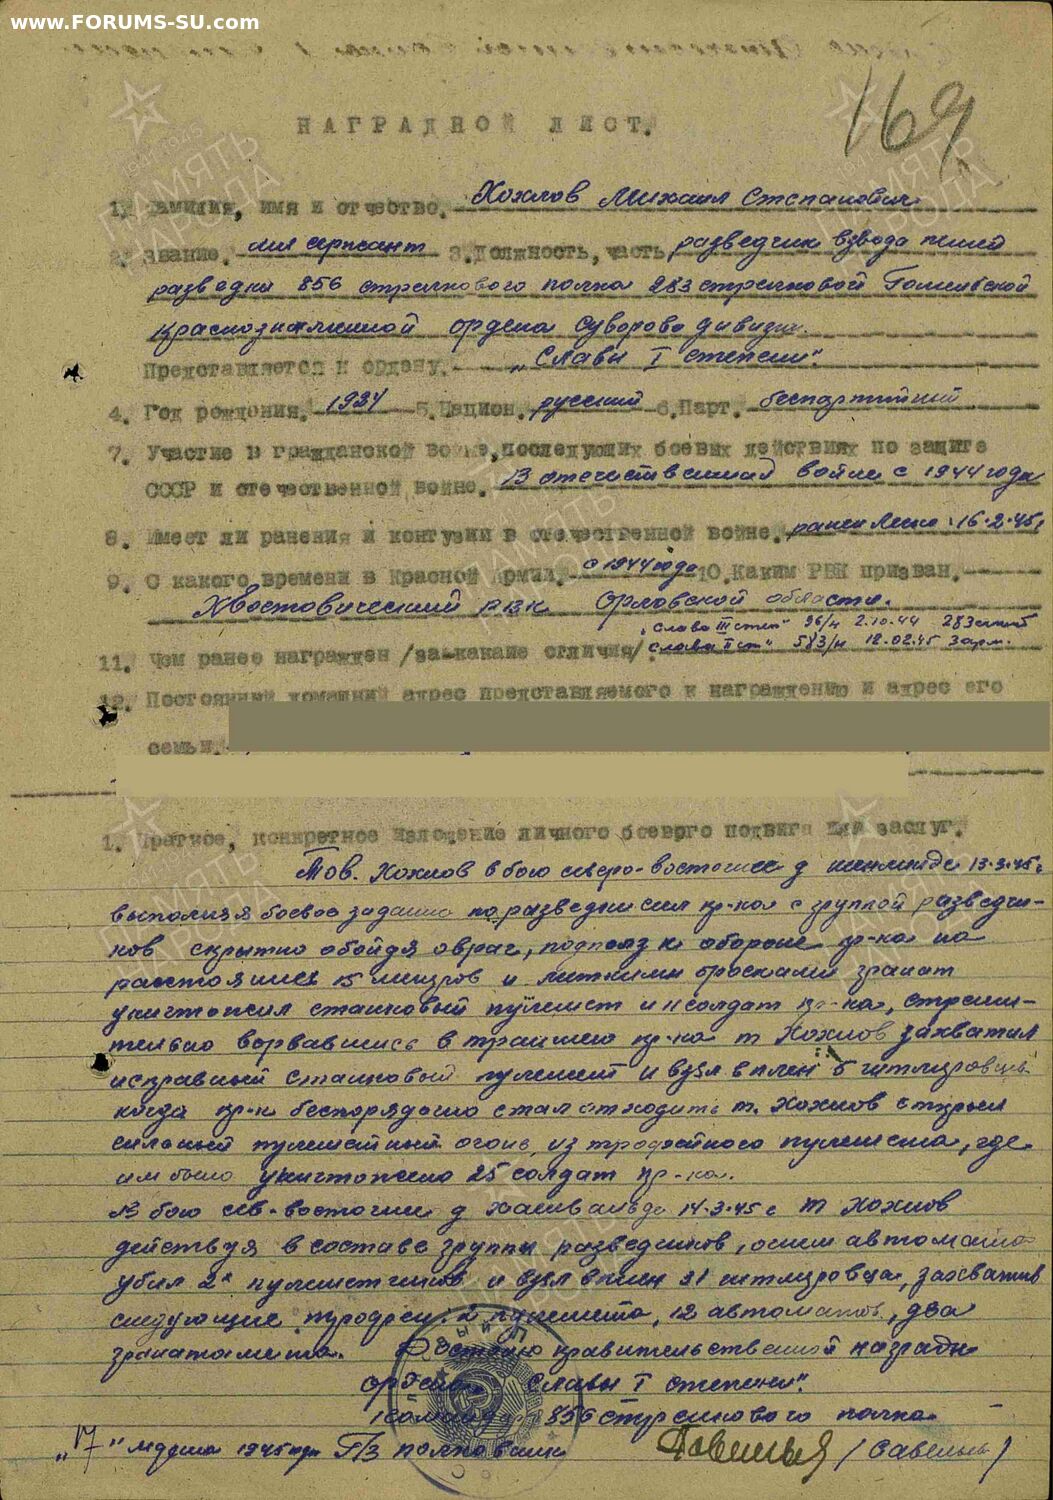 www.FORUMS-SU.com
169
НАГРАДНОЙ ЛИСТ.
1. Фамилия, имя и отчество. Хохлов Михаил Степанович
2. Звание. мл сержант 3. Должность, часть разведчик взвода пешей
разведки 856 стрелкового полка 283 стрелковой Гомельской
краснознаменной ордена Суворова дивизии.
Представляется к ордену. „Славы I степени".
4. Год рождения. 5. Национ. русский 6. Парт. беспартийный
7. Участие в гражданской войне, последующих боевых действиях по защите
СССР и отечественной войне. В отечественной войне с 1944 года
8. Имеет ли ранения и контузии в отечественной войне. ранен легко 16.2.45г
9. С какого времени в Красной Армии. с 1944 года 10. Каким РВК призван.
Хвостовический РВК Орловской области.
„Слава III степ" 96/н 2.10.44 283
11. Чем ранее награжден /за какие отличия/. Слава II ст" 583/н 12.02.45 3 арм.
12. Постоянный домашний адрес представляемого к награждению и адрес его
семьи.
1. Краткое, конкретное изложение личного боевого подвига или заслуг.
Тов. Хохлов в бою северо-восточнее д 13.3.45г
выполняя боевое задание по разведке сил пр-ка с группой разведчи-
ков скрытно обойдя овраг, подполз к обороне пр-ка на
расстояние 15 метров и меткими бросками гранат
уничтожил станковый пулемет и солдат пр-ка, стреми-
тельно ворвавшись в траншею пр-ка т Хохлов захватил
исправный станковый пулемет и взял в плен 5 гитлеровцев
когда пр-к беспорядочно стал отходить т. Хохлов открыл
сильный пулеметный огонь из трофейного пулемета, где
им было уничтожено 25 солдат пр-ка.
В бою сев-восточнее д 14.3.45г т Хохлов
действуя в составе группы разведчиков, огнем автомата
убил 2х пулеметчиков и взял в плен 21 гитлеровца, захватив
следующие трофеи: 2 пулемета, 12 автоматов, два
гранатомета. Достоин правительственной награды
орден „Славы I степени".
Командир 856 стрелкового полка
„17" марта 1945 года Г/З полковник / Савельев /
ПАМЯТЬ НАРОДА